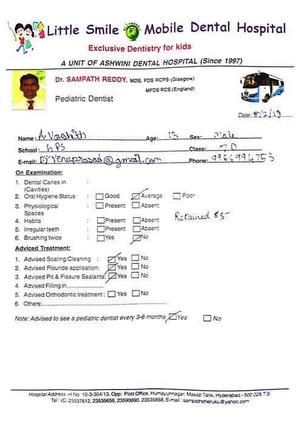 Little Smile Mobile Dental Hospital
Exclusive Dentistry for kids
A UNIT OF ASHWINI DENTAL HOSPITAL (Since 1997)
Dr. SAMPATH REDDY, MDS, FDS RCPS (Glasgow)
MFDS RCS (England)
Pediatric Dentist
Date:
Name: Age: 13 Sex: Male
School: Class: 7 D
E-mail: @gmail.com Phone:
On Examination:
1. Dental Caries in
(Cavities)
2. Oral Hygiene Status Good Average Poor
3. Physiological Present Absent
Spaces
4. Habits Present Absent Retained
5. Irregular teeth Present Absent
6. Brushing twice Yes No
Adviced Treatment:
1. Advised Scaling/Cleaning Yes No
2. Advised Flouride application Yes No
3. Advised Pit & Fissure Sealants Yes No
4. Advised Filling in
5. Advised Orthodontic treatment: Yes No
6. Others:
Note: Advised to see a pediatric dentist every 3-6 months Yes No
Hospital Address: H No. 10-3-304/13, Opp: Post Office, Humayunnagar, Masab Tank, Hyderabad - 500 028 T.S
Tel: (C) 23537612, 23535656, 23590690, 23535668. E-mail: sampathcheruku@yahoo.com